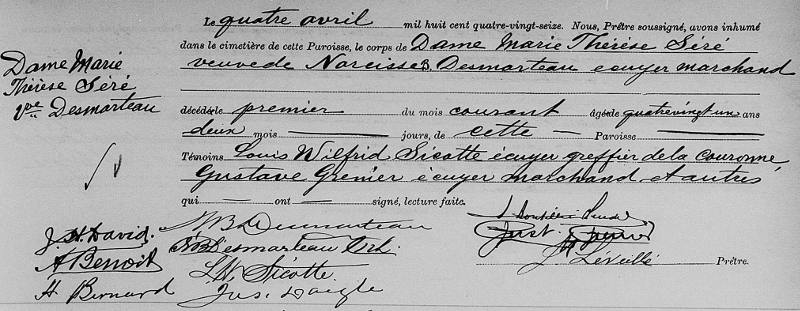 Le quatre avril mil huit cent quatre-vingt-seize. Nous, Prêtre soussigné, avons inhumé
dans le cimetière de cette Paroisse, le corps de Dame Marie Thérèse Séré
veuve de Narcisse B. Desmarteau écuyer marchand
Dame Marie
Thérèse Séré
Vve Desmarteau
décédé le premier du mois courant âgé de quatrevingt un ans
deux mois jours, de cette Paroisse
Témoins Louis Wilfrid Sicotte écuyer greffier de la couronne
Gustave Grenier écuyer marchand et autres
qui ont signé, lecture faite.
J. H. David. N B Desmarteau
A Benoit Desmarteau Gust. Grenier
L. W. Sicotte Léveillé Prêtre.
H Bernard Jos. Daigle